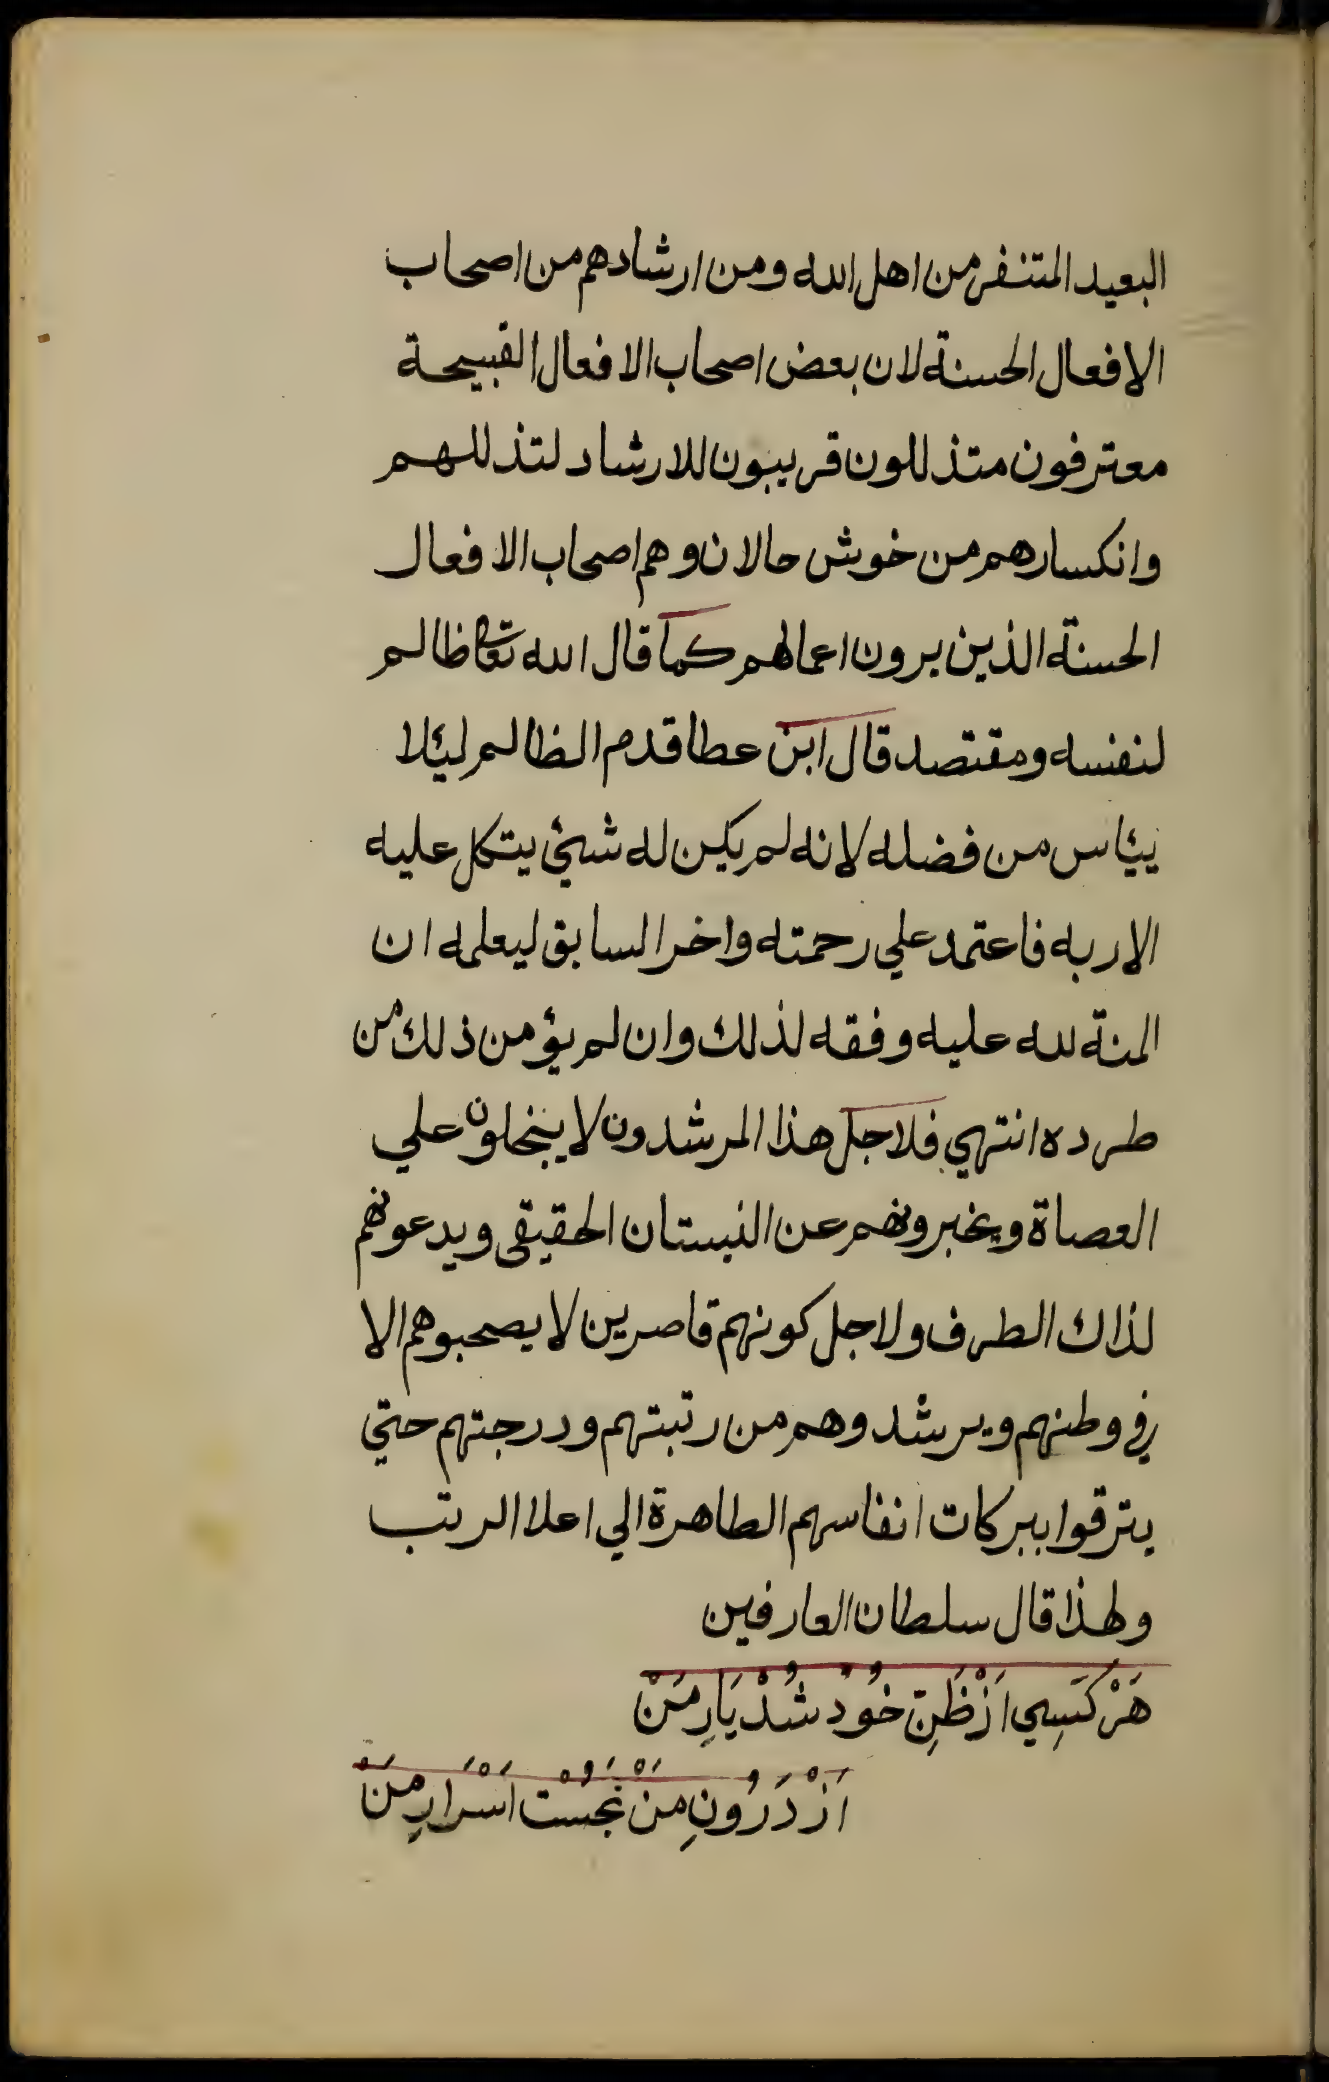 البعيد المتنفر من اهل الله ومن ارشادهم من اصحاب
الافعال الحسنة لان بعض اصحاب الافعال القبيحة
معترفون متذللون قريبون للارشاد لتذللهم
وانكسارهم من خوش حالان وهم اصحاب الافعال
الحسنة الذين يرون اعمالهم كما قال الله تعالى ظالم
لنفسه ومقتصد قال ابن عطا قدم الظالم ليئلا
ييئاس من فضله لانه لم يكن له شيئ يتكل عليه
الا ربه فاعتمد علي رحمته واخر السابق ليعلمه ان
المنة لله عليه وفقه لذلك وان لم يؤمن ذلك من
طرده انتهي فلاجل هذا المرشدون لا يبخلون علي
العصاة ويخبرونهم عن النيستان الحقيقي ويدعونهم
لذاك الطرف ولاجل كونهم قاصرين لا يصحبوهم الا
في وطنهم ويرشدوهم من رتبتهم ودرجتهم حتي
يترقوا ببركات انفاسهم الطاهرة الي اعلا الرتب
ولهذا قال سلطان العارفين
هَرْ كَسِي اَزْ ظَنِّ خُودْ شُدْ يَارِ مَنْ
اَزْ دَرُونِ مَنْ نَجُسْت اَسْرَارِ مَنْ